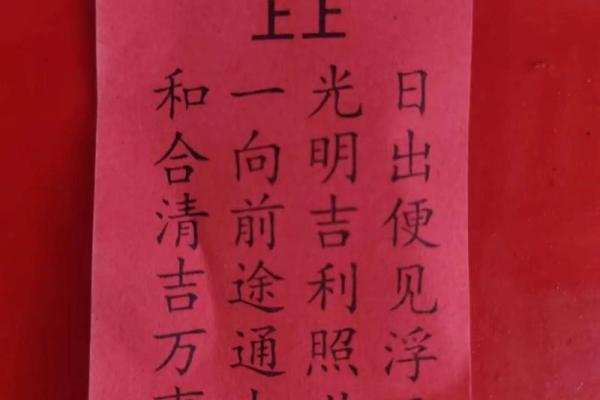 上上
日出便见浮
光明吉利照
一向前途通
和合清吉万